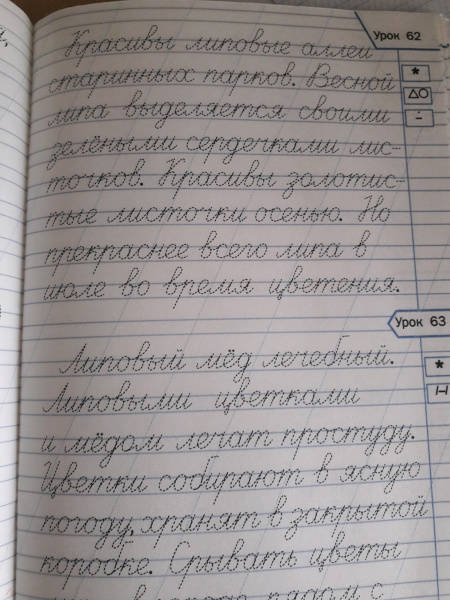 Урок 62
Красивы липовые аллеи
старинных парков. Весной
липа выделяется своими
зелёными сердечками лис-
точков. Красивы золотис-
тые листочки осенью. Но
прекраснее всего липа в
июле во время цветения.
Урок 63
Липовый мёд лечебный.
Липовыми цветками
и мёдом лечат простуду.
Цветки собирают в ясную
погоду, хранят в закрытой
коробке. Срывать цветы
рядом с